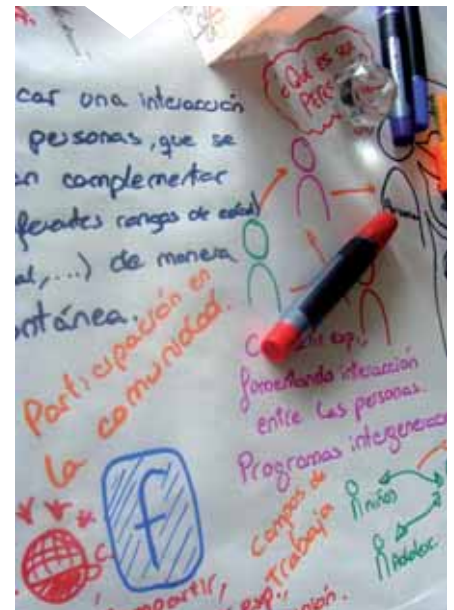 car una interacción
personas, que se
en complementar
ferentes rangos de edad)
al,...) de manera
ntánea.
¿Qué es ser
Participación en
la comunidad.
exp.,
fomentando interacción
entre las personas.
Programas intergenerac
f
Campos de
Trabajo
niños
Adoloc.
mpartir,
exp.,